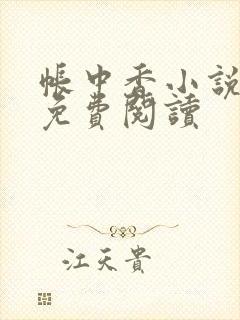 帳中香小說
免費閱讀
江天貴